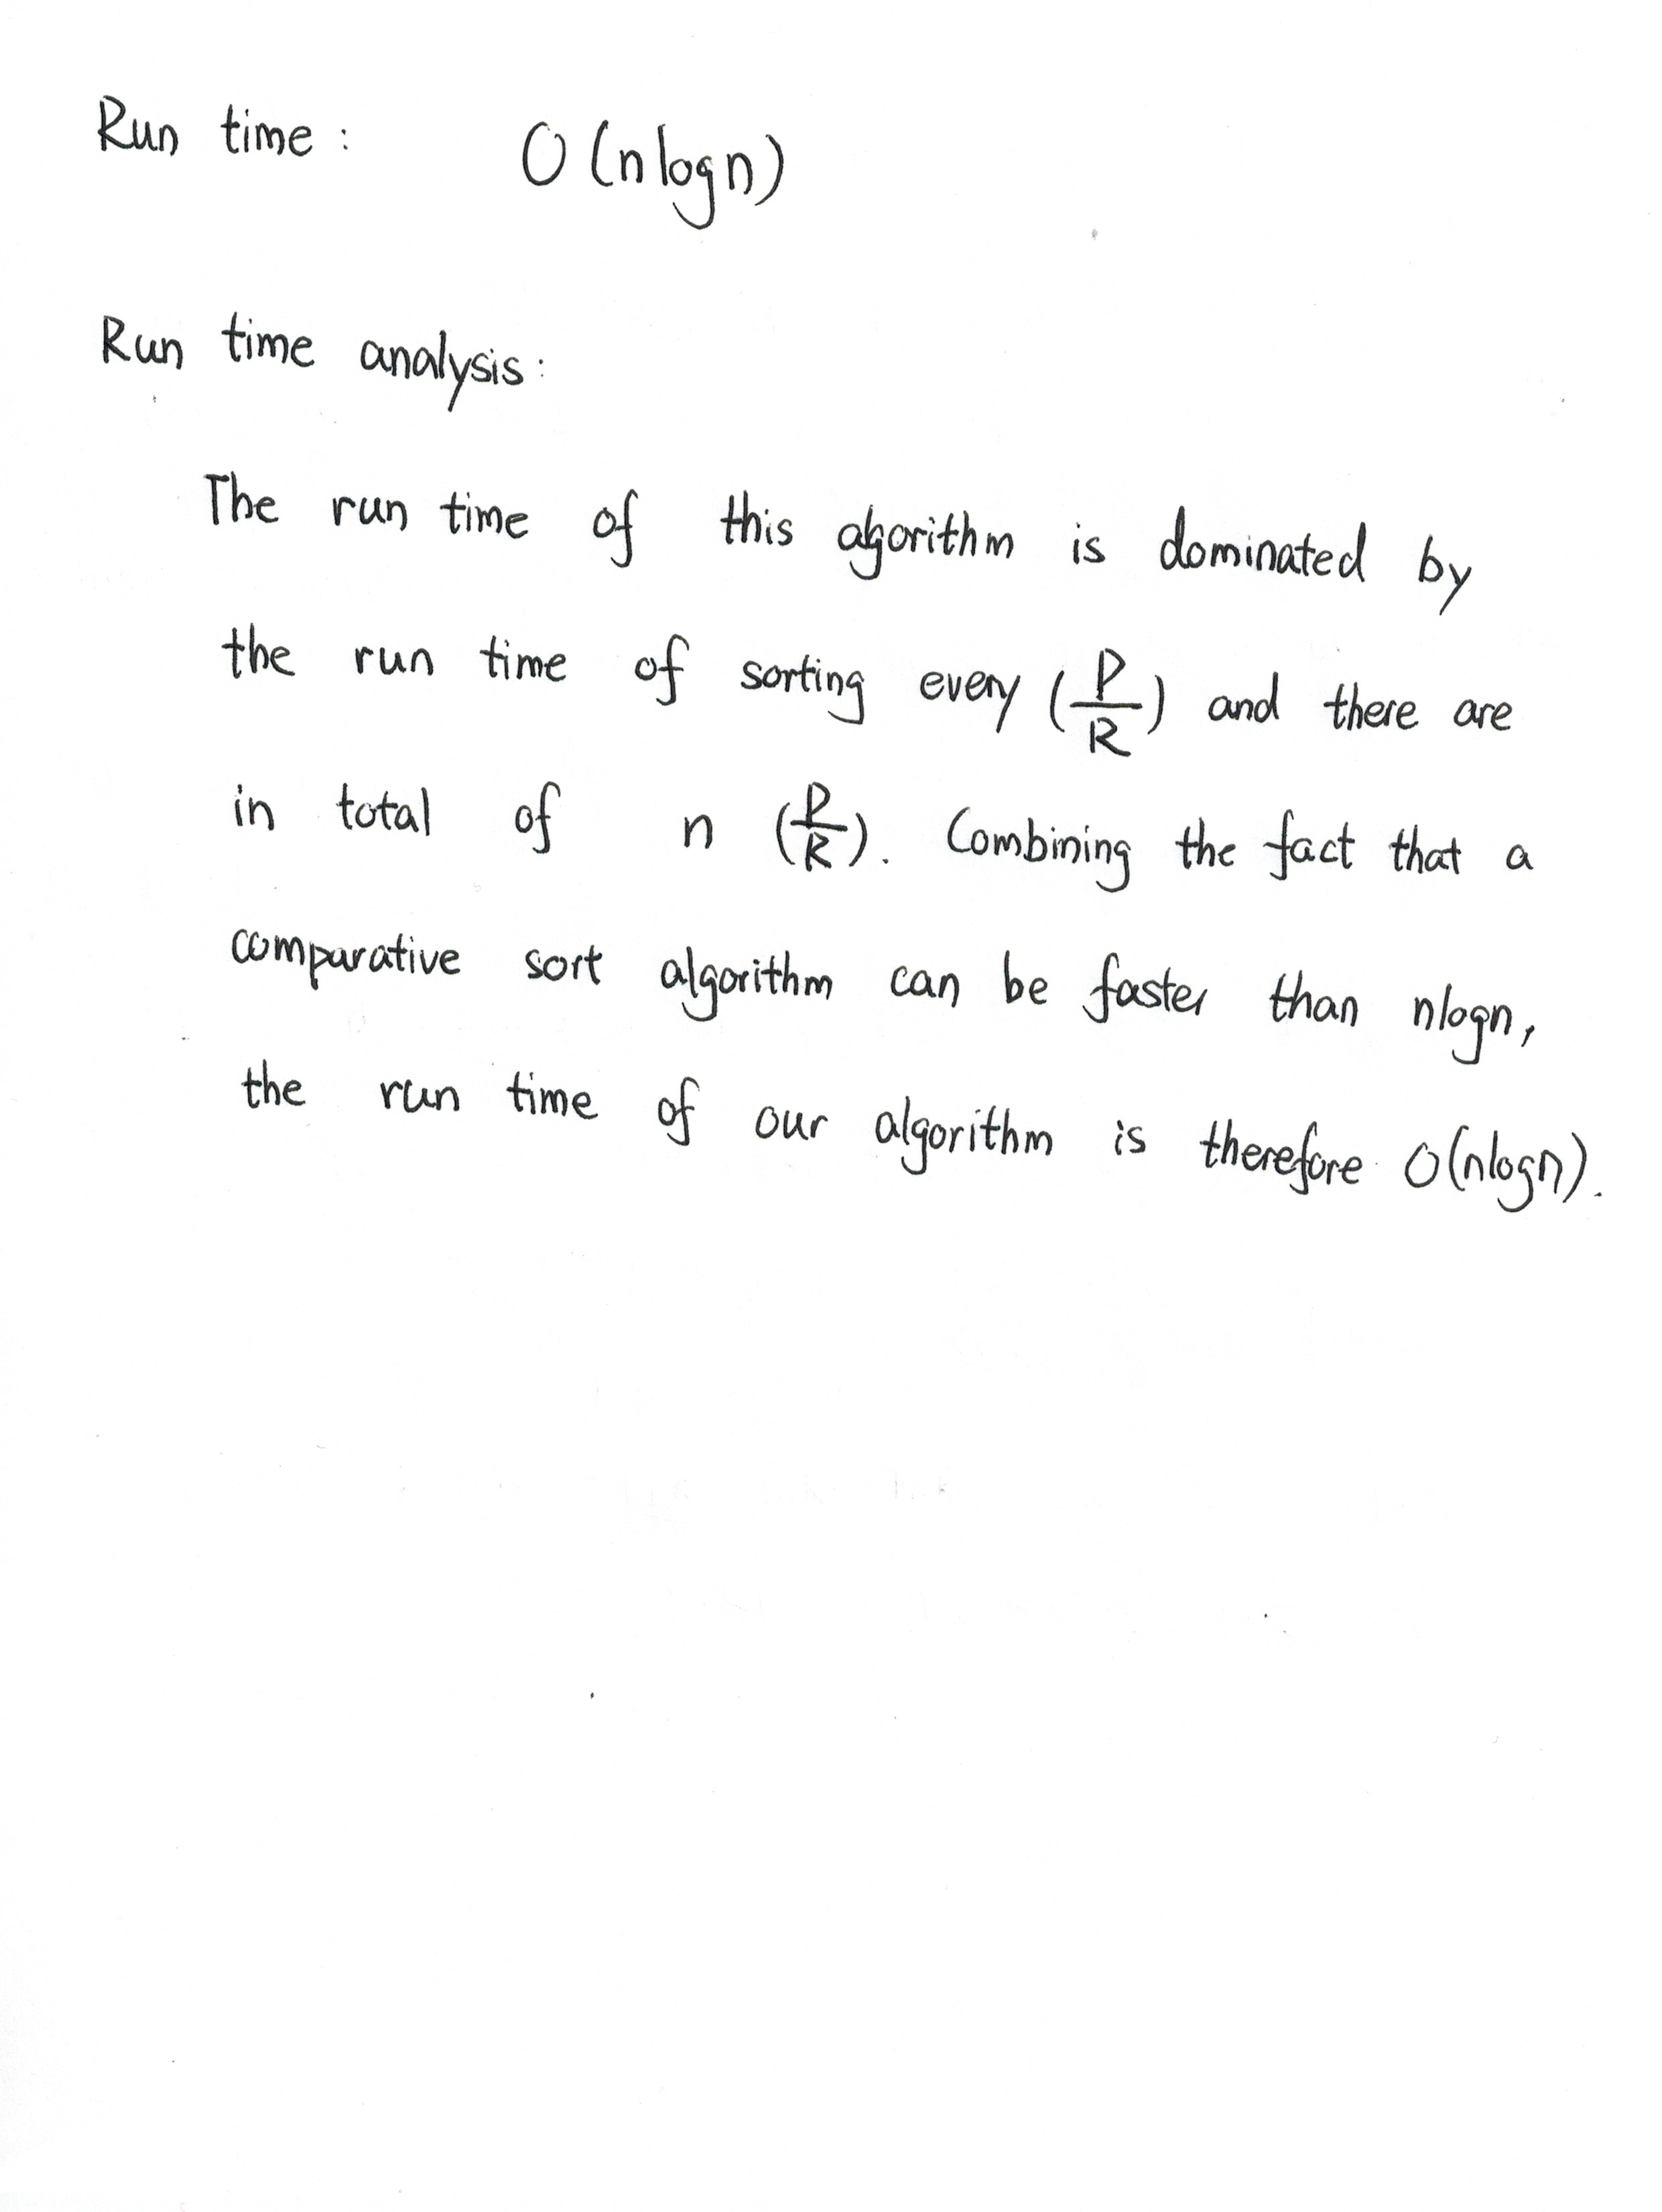 Run time : O(nlogn)
Run time analysis:
The run time of this algorithm is dominated by
the run time of sorting every (P/R) and there are
in total of n (P/R). Combining the fact that a
comparative sort algorithm can be faster than nlogn,
the run time of our algorithm is therefore O(nlogn).